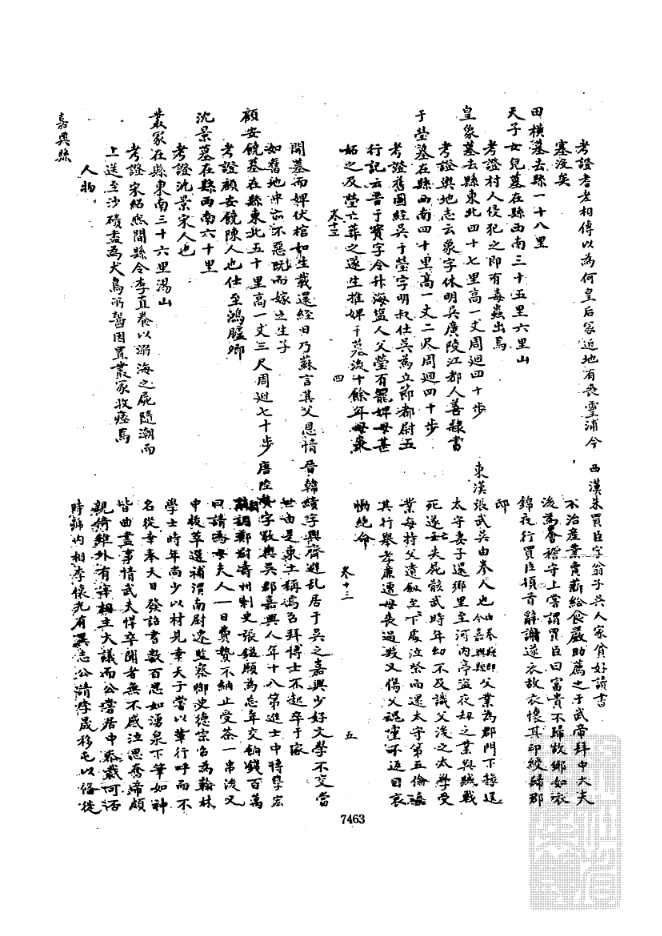 考證耆老相傳以為何皇后冢近地有喪靈浦今
塞沒矣
田橫墓去縣一十八里
天子女兒墓在縣西南三十五里六里山
考證村人侵犯之即有毒蟲出焉
皇象墓去縣東北四十七里高一丈周迴四十步
考證輿地志云象字休明吳廣陵江都人善隸書
于瑩墓在縣西南四十里高一丈二尺周迴四十步
考證舊圖經吳于瑩字明叔仕吳為立節都尉五
行記云晉于寶字令升海鹽人父瑩有寵婢母甚
妬之及瑩亡葬之遂生推婢于墓後十餘年母喪
卷十三 四
開墓而婢伏棺如生載還經日乃蘇言其父恩情
如舊地中亦不惡既而嫁之生子
顧安饒墓在縣東北五十里高一丈三尺周迴七十步
考證顧安饒陳人也仕至鴻臚卿
沈景墓在縣西南六十里
考證沈景宋人也
叢冢在縣東南三十六里湯山
考證宋紹熙間縣令李直養以溺海之屍隨潮而
上送至沙磧盡為犬鳥所齧因置叢冢收瘞焉
人物
嘉興縣
西漢朱買臣字翁子吳人家貧好讀書
不治產業賣薪給食嚴助薦之于武帝拜中大夫
後為會稽守上嘗謂買臣曰富貴不歸故鄉如衣
錦夜行買臣頓首辭謝遂衣故衣懷其印綬歸郡
邸
東漢張武吳由拳人也由拳縣即今嘉興縣父業為郡門下掾送
太守妻子還鄉里至河內亭盜夜劫之業與賊戰
死遂亡失屍骸武時年幼不及識父後之太學受
業每持父遺劍至亡處泣祭而還太守第五倫嘉
其行舉孝廉遭母喪過毀又傷父魂靈不返因哀
慟絕命
卷十三 五
晉韓績字興齊避亂居于吳之嘉興少好文學不交當
世由是東土稱焉召拜博士不起卒于家
唐陸贄字敬輿吳郡嘉興人年十八第進士中博學宏
辭調鄭尉壽州刺史張鎰願為忘年交餉錢百萬
曰請為母夫人一日費贄不納止受茶一串後又
中拔萃選補渭南尉遷監察御史德宗召為翰林
學士時年尚少以材見幸天子嘗以輩行呼而不
名從幸奉天日發詔書數百思如湧泉下筆如神
皆曲盡事情武夫悍卒聞者無不感泣思奮歸頗
親倚雖外有宰相主大議而公嘗居中參裁可否
時號內相李懷光有異志公請李晟移屯以俗從
7463